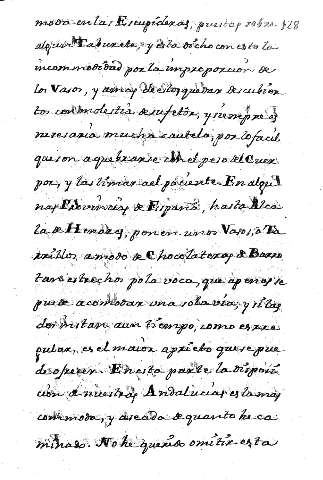 moda en las Escupideras, puestas sobre 178
algun Taburete, y esta dicho con esto la
incommodidad por la impreporcion de
los Vasos, y amas de estos quedar descubier
tos con molestia de sugeto, y siempre es
necesaria mucha cautela, por lo facil
que son a quebrarse con el peso del Cuer
po, y lastimar al paciente. En algu
nas Provincias de España, hasta Alca
la de Henares, ponen unos Vasos, o Ta
rrillos, a modo de Chocolateras de Barro
tan estrechos por la voca, que apenas se
puede acomodar una sola via, y si las
dos instan a un tiempo, como es re
gular, es el maior aprieto que se pue
de ofrecer. En esta parte la disposi
cion de nuestras Andalucias es la mas
commoda, y aseada de quanto he ca
minado. No he querido omitir esta